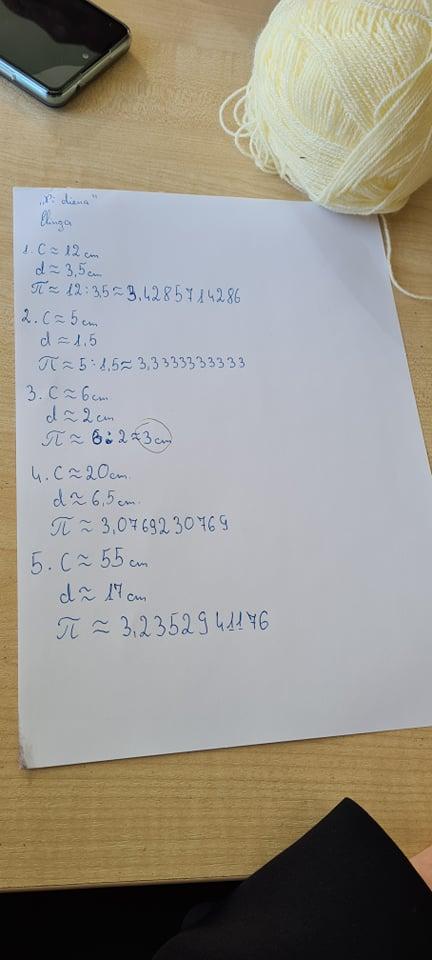 „Pi diena"
1. C ≈ 12 cm
d ≈ 3,5 cm
π ≈ 12 : 3,5 ≈ 3,4285714286
2. C ≈ 5 cm
d ≈ 1,5
π ≈ 5 : 1,5 ≈ 3,3333333333
3. C ≈ 6 cm
d ≈ 2 cm
π ≈ 6 : 2 ≈ 3 cm
4. C ≈ 20 cm.
d ≈ 6,5 cm.
π ≈ 3,0769230769
5. C ≈ 55 cm
d ≈ 17 cm
π ≈ 3,2352941176